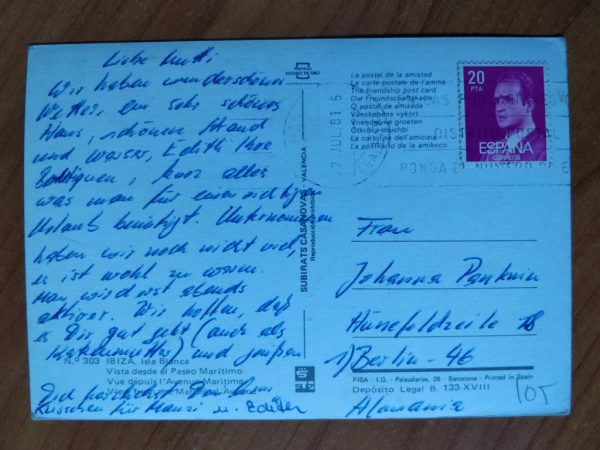 Liebe Mutti
Wir haben wunderschönes
Wetter, ein sehr schönes
Haus, schönen Strand
und Wasser, Edith ihre
Boutiquen, kurz alles
was man für einen richtigen
Urlaub benötigt. Unternommen
haben wir noch nicht viel,
es ist wohl zu warm.
Man wird erst abends
aktiver. Wir hoffen, daß
es Dir gut geht (auch als
Katzenmutter) und grüßen
Dich herzlichst
Küsschen für Mauzi u. Edith
N.º 303 IBIZA. Isla Blanca
Vista desde el Paseo Marítimo
Vue depuis l'Avenue Maritime
View from the Maritime Avenue
POSTALES
ESCUDO DE ORO
SUBIRATS CASANOVAS - VALENCIA
Reproducción prohibida
La postal de la amistad
La carte postale de l'amitié
The friendship post card
Die Freundschaftskarte
O postal de amizade
Vänskapens vykort
Vriendelijke groeten
Otkritka druchbi
La cartolina dell'amicizia
La postkarto de la amikeco
2 JUL. 81
DISTRITO POSTAL
PONGA EL NUMERO DE
20
PTA
ESPAÑA
CORREOS
Frau
Johanna
Hünefeldzeile 18
1) Berlin - 46
Alemania
FISA - I.G. - Palaudarias, 26 - Barcelona - Printed in Spain
Depósito Legal B. 133-XVIII
105